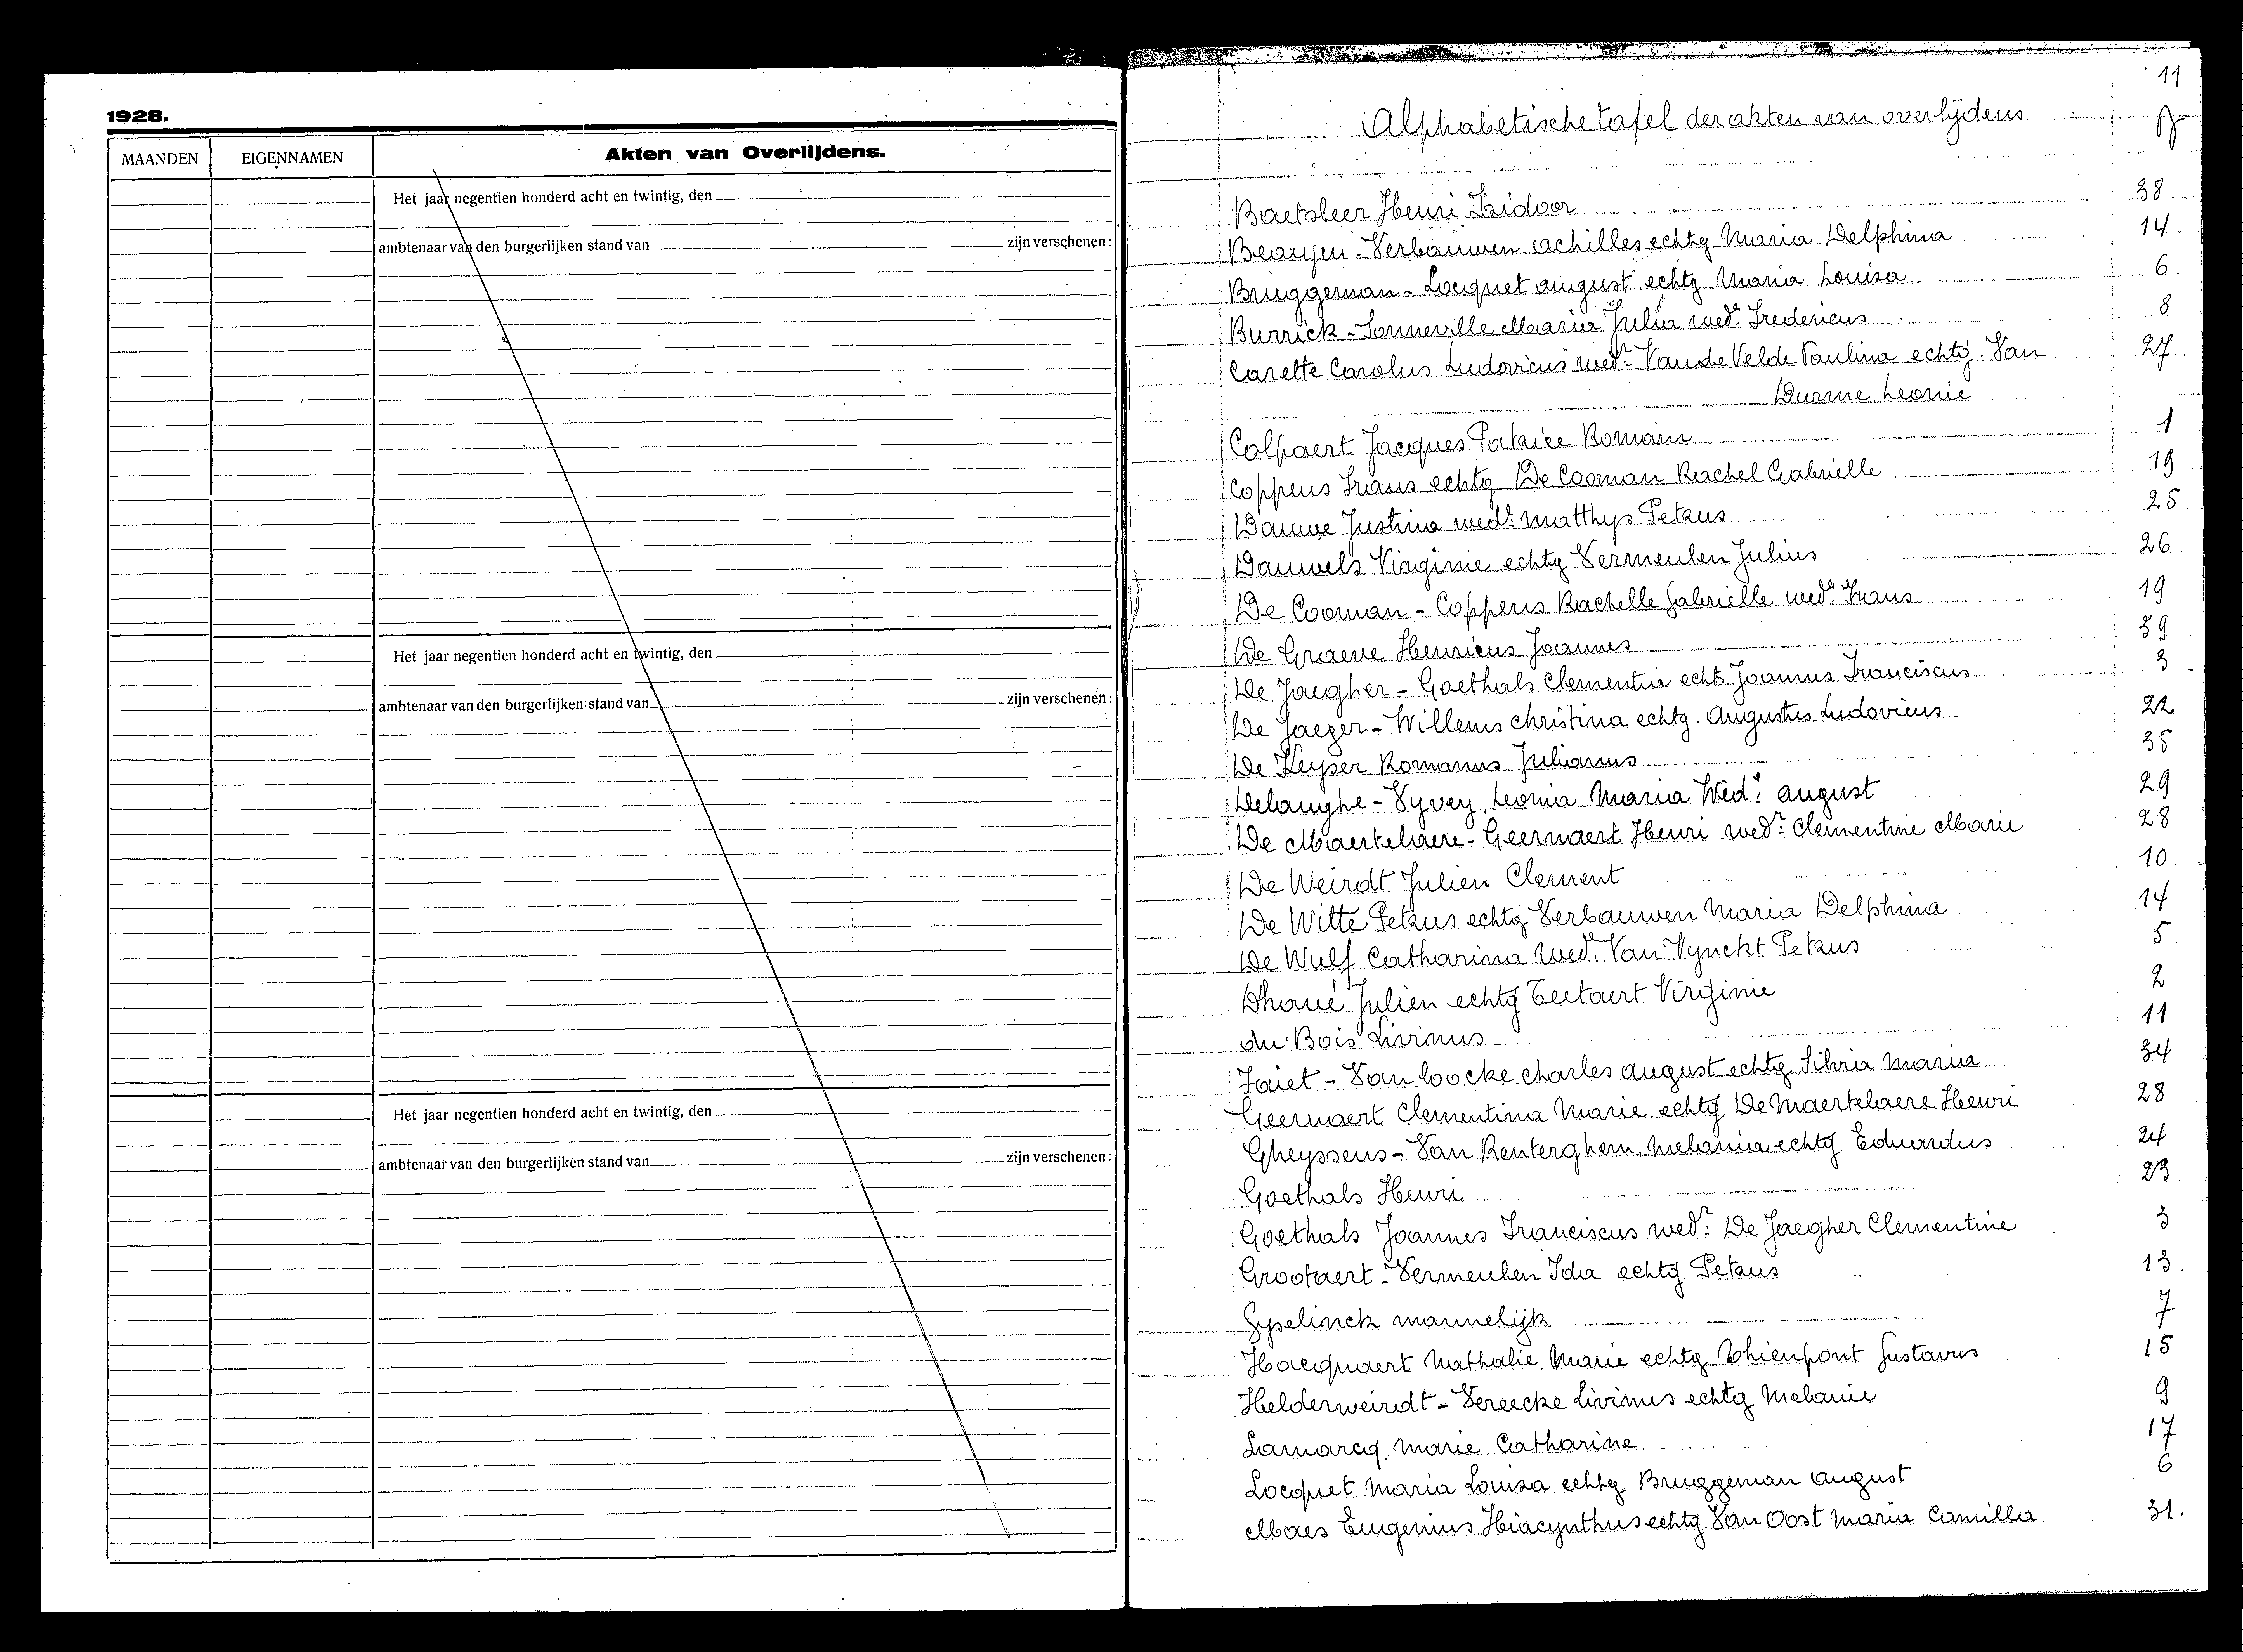 1928.
MAANDEN EIGENNAMEN Akten van Overlijdens.
Het jaar negentien honderd acht en twintig, den
ambtenaar van den burgerlijken stand van zijn verschenen:
Het jaar negentien honderd acht en twintig, den
ambtenaar van den burgerlijken stand van zijn verschenen:
Het jaar negentien honderd acht en twintig, den
ambtenaar van den burgerlijken stand van zijn verschenen:
11
Alphabetische tafel der akten van overlijdens
Baetsleer Henri Isidoor 38
Verbauwen Achilles echtg Maria Delphina 14
Bruggeman - Locquet August echtg Maria Louisa 6
Burrick - Sonneville Maria Julia wede Fredericus 8
Carette Carolus Ludovicus wedr Van de Velde Paulina echtg. Van 27
Durme Leonie
Colpaert Jacques Patrice Romain 1
Coppens Frans echtg De Cooman Rachel Gabrielle 19
Dauwe Justina wede Matthys Petrus 25
Dauwels Virginie echtg Vermeulen Julius 26
De Cooman - Coppens Rachelle Gabrielle wede Frans 19
De Graeve Henricus Joannes 39
De Jaegher - Goethals Clementia echt. Joannes Franciscus 3
De Jaeger - Willems Christina echtg. Augustus Ludovicus 22
De Keyser Romanus Julianus 35
Delanghe - Vyvey, Leonia Maria Wede August 29
De Maertelaere - Geernaert Henri wedr Clementine Marie 28
De Weirdt Julien Clement 10
De Witte Petrus echtg Verbauwen Maria Delphina 14
De Wulf Catharina Wede Van Vynckt Petrus 5
Dhoué Julien echtg Teetaert Virginie 2
du Bois Livinus 11
Faiet - Van Loocke Charles August echtg Silvia Maria 34
Geernaert Clementina Marie echtg De Maertelaere Henri 28
Gheyssens - Van Renterghem, Melania echtg Eduardus 24
Goethals Henri 23
Goethals Joannes Franciscus wedr De Jaegher Clementine 3
Grootaert - Vermeulen Ida echtg Petrus 13.
Gyselinck mannelijk 7
Haequaert Nathalie Marie echtg Thienpont Gustavus 15
Helderweirdt - Vereecke Livinus echtg Melanie 9
Lamarcq. Marie Catharine 17
Locquet Maria Louisa echtg Bruggeman August 6
Maes Eugenius Hiacynthus echtg Van Oost Maria Camilla 31.